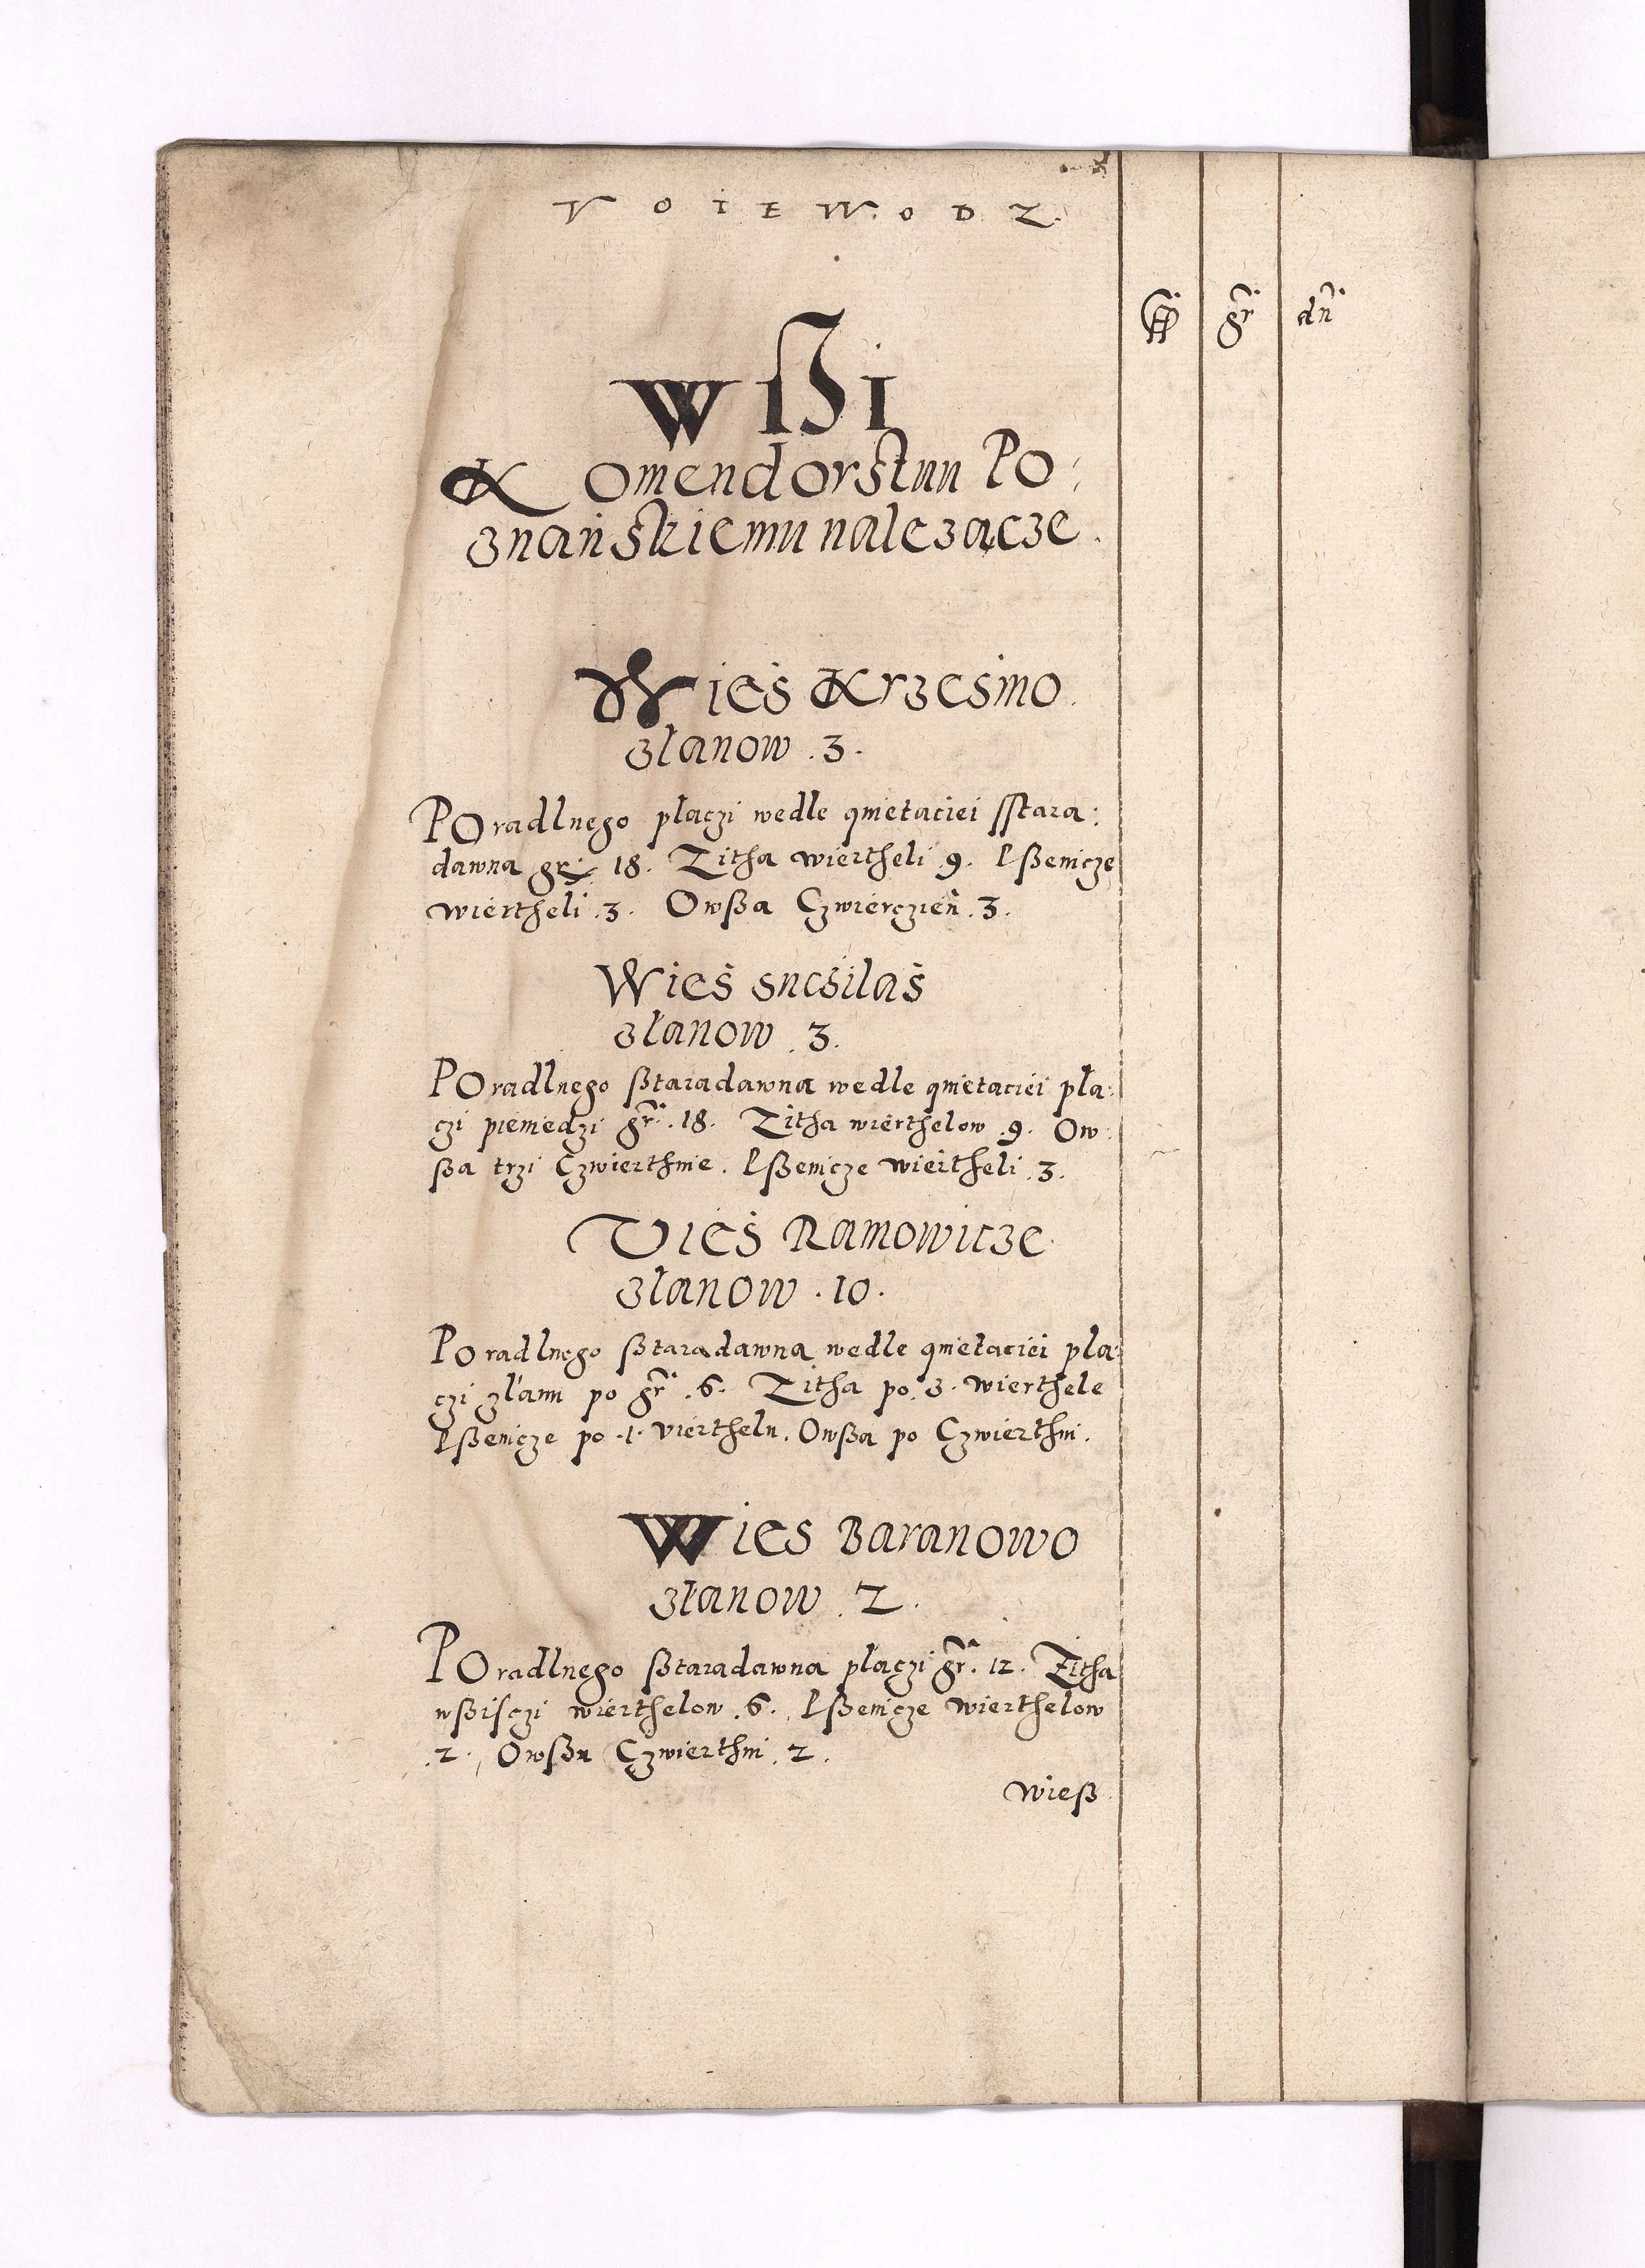 VOIEWODZ.
gr dn
WSSI
Komendorstuu Po:
znańskiemu należącze.
Wieś Krzesino.
złanow .3.
POradlnego płaczi wedle quietaciei sstara:
dawna gr: 18. Zitha wiertheli 9. Pßenicze
wiertheli .3. Owßa Czwierczień .3.
Wieś
złanow .3.
POradlnego ßtaradawna wedle quietaciei pła:
czi pieniedzi gr. 18. Zitha wierthelow .9. Ow:
ßa trzi Czwierthnie. Pßenicze wiertheli .3.
Vieś Ramowicze
złanow .10.
POradlnego ßtaradawna wedle quietaciei pła:
czi złanu po gr .6. Zitha po .3. wierthele
Pßenicze po .1. viertheln. Owßa po Czwierthni.
Wies Baranowo
złanow .2.
POradlnego ßtaradawna płaczi gr. 12. Zitha
wßisczi wierthelow .6. Pßenicze wierthelow
.2. Owßu Czwierthni .2.
wieß